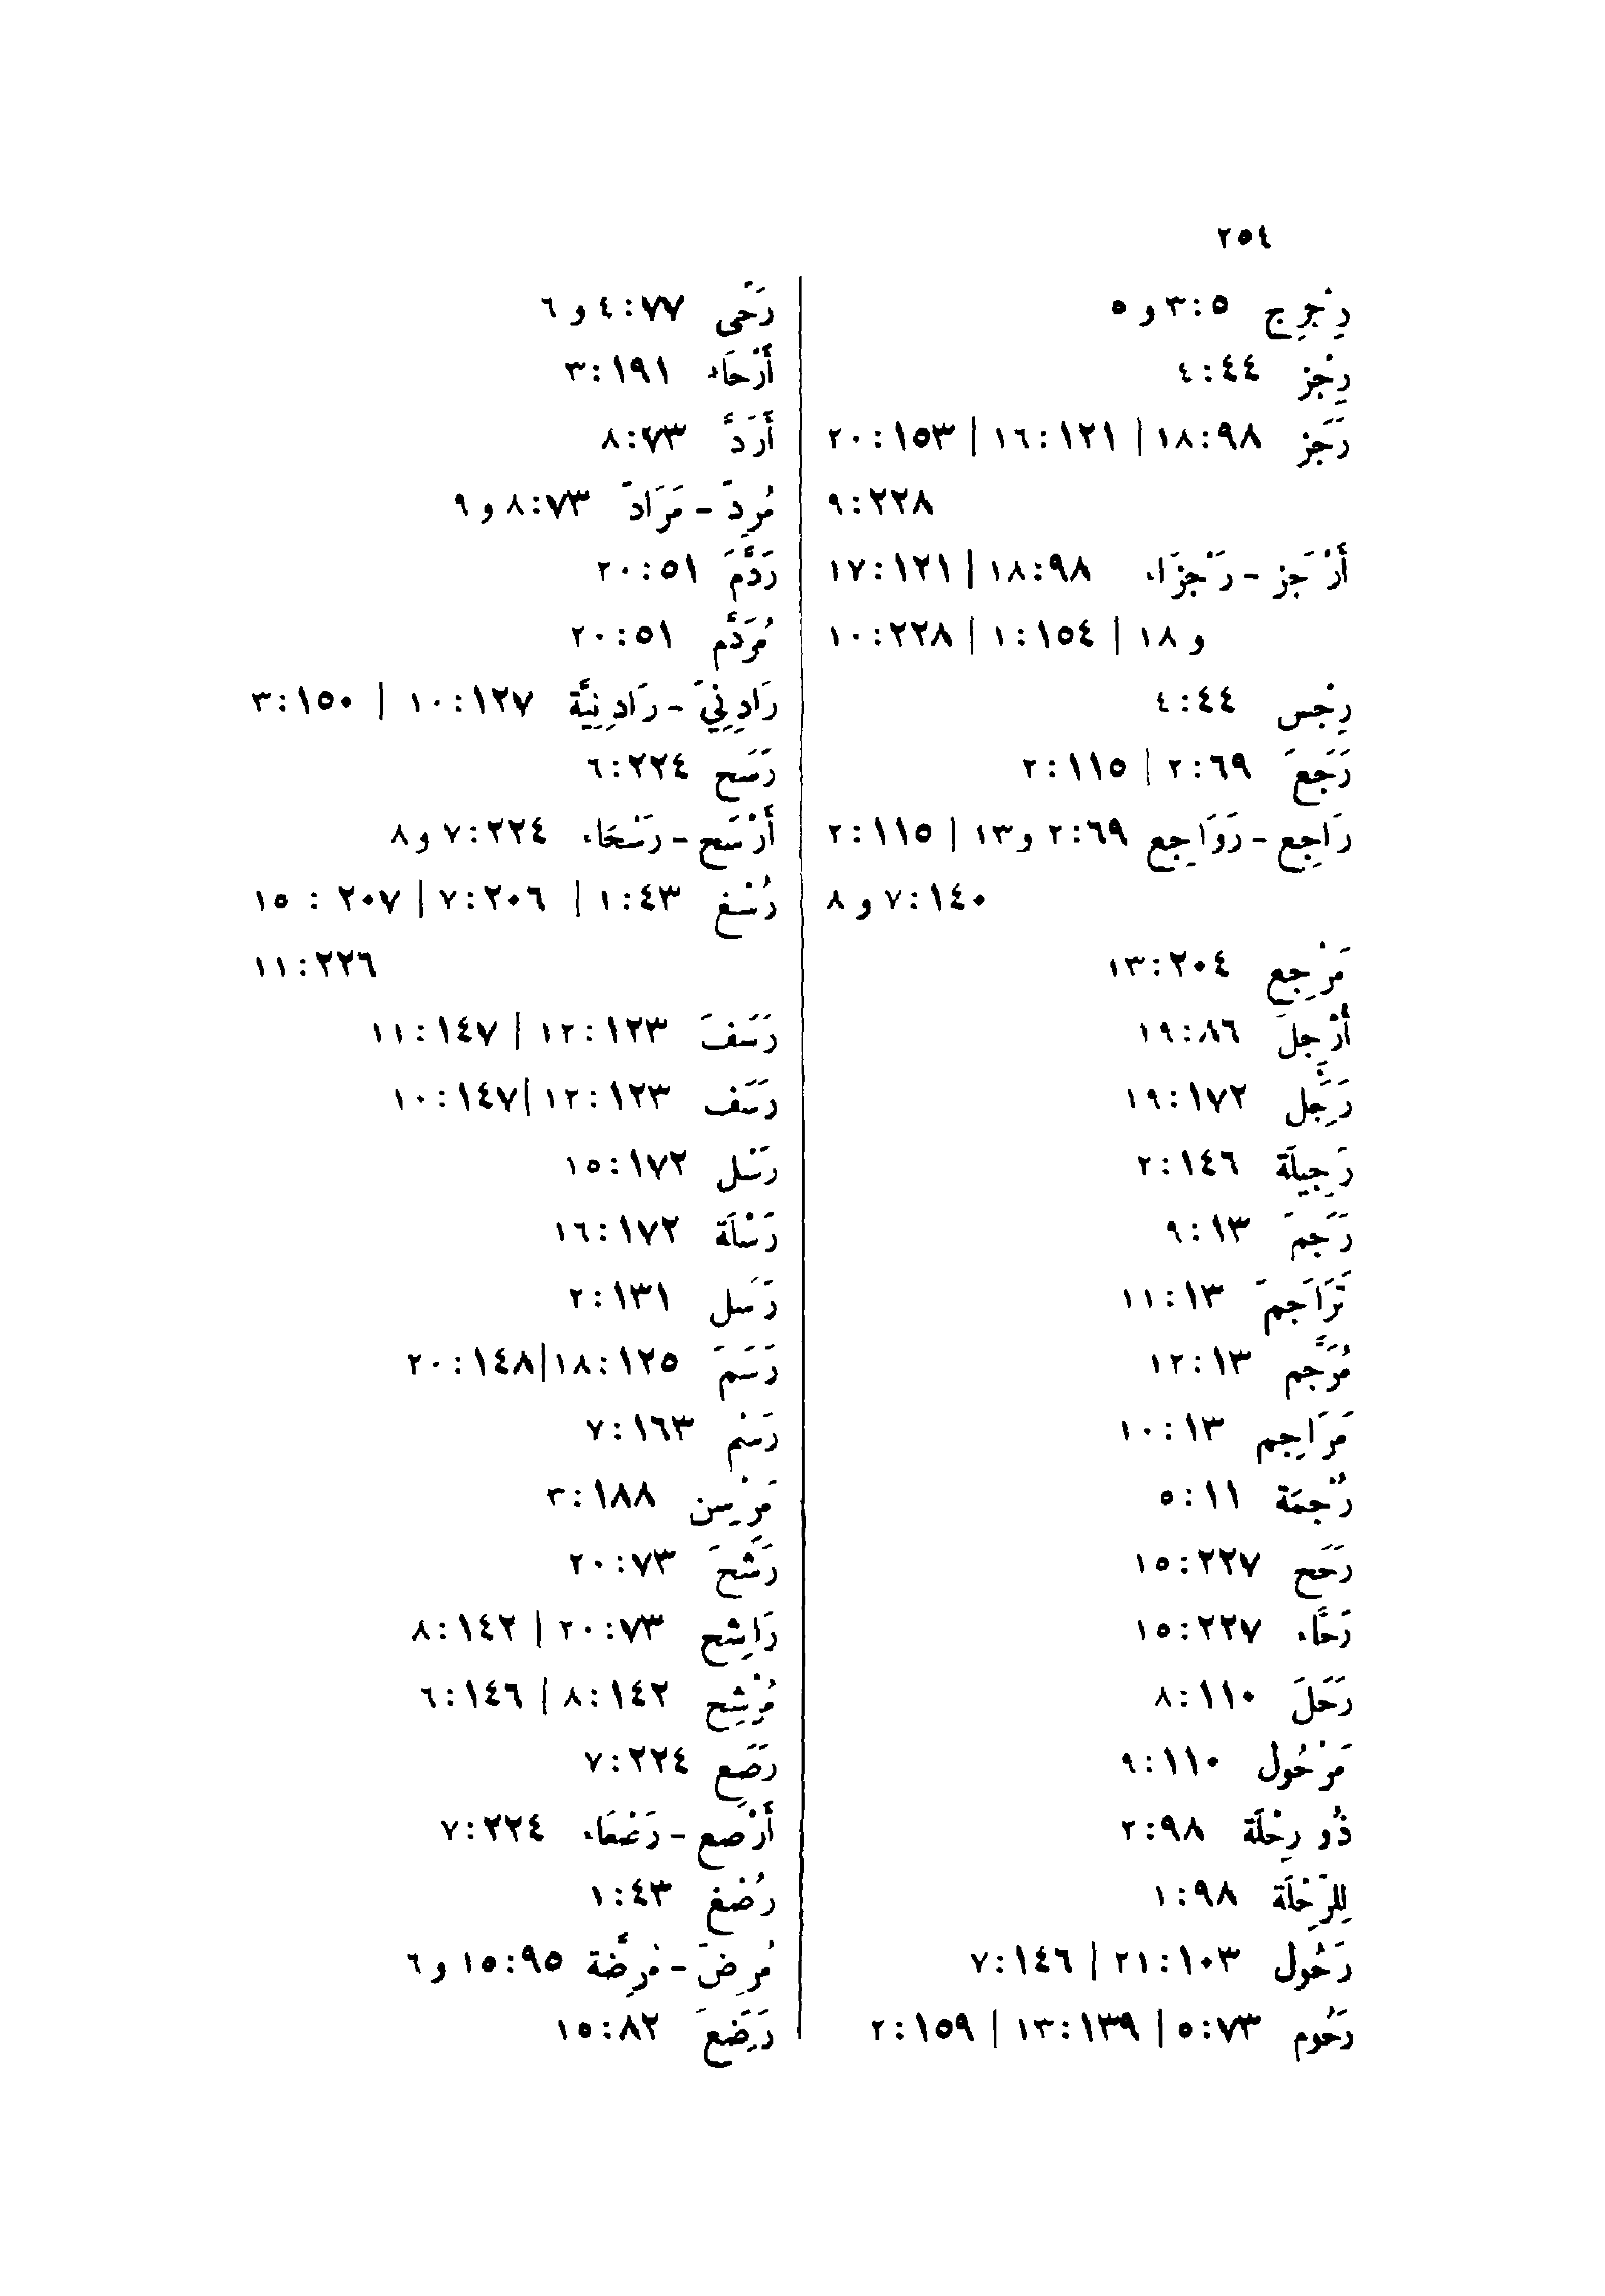 ٢٥٤
رِجْرِج ٥:٣ و ٥
رِجْز ٤٤:٤
رَجَز ٩٨:١٨ | ١٢١:١٦ | ١٥٣:٢٠
٢٢٨:٩
أَرْجَز - رَجْزَاء ٩٨:١٨ | ١٢١:١٧
و ١٨ | ١٥٤:١ | ٢٢٨:١٠
رِجْس ٤٤:٤
رَجَعَ ٦٩:٢ | ١١٥:٢
رَاجِع - رَوَاجِع ٦٩:٢ و١٣ | ١١٥:٢
١٤٠:٧ و ٨
مَرْجِع ٢٠٤:١٣
أَرْجَلَ ٨٦:١٩
رَجِل ١٧٢:١٩
رَجِيلَة ١٤٦:٢
رَجَمَ ١٣:٩
تَرَاجَمَ ١٣:١١
مُرَجَّم ١٣:١٢
مَرَاجِم ١٣:١٠
رُجْمَة ١١:٥
رَحَح ٢٢٧:١٥
رَحَّاء ٢٢٧:١٥
رَحَلَ ١١٠:٨
مَرْحُول ١١٠:٩
ذُو رِحْلَة ٩٨:٢
لِلرِّحْلَة ٩٨:١
رَحُول ١٠٣:٢١ | ١٤٦:٧
رَحُوم ٧٣:٥ | ١٣٩:١٣ | ١٥٩:٢
رَحًى ٧٧:٤ و ٦
أَرْحَاء ١٩١:٣
أَرَدَّ ٧٣:٨
مُرِدّ - مَرَادّ ٧٣:٨ و ٩
رَدَّمَ ٥١:٢٠
مُرَدَّم ٥١:٢٠
رَادِنِيّ - رَادِنِيَّة ١٢٧:١٠ | ١٥٠:٣
رَسَح ٢٢٤:٦
أَرْسَح - رَسْحَاء ٢٢٤:٧ و٨
رُسْغ ٤٣:١ | ٢٠٦:٧ | ٢٠٧ : ١٥
٢٢٦:١١
رَسَفَ ١٢٣:١٢ | ١٤٧:١١
رَسَف ١٢٣:١٢|١٤٧:١٠
رَسْل ١٧٢:١٥
رَسْلَة ١٧٢:١٦
رَسَل ١٣١:٢
رَسَمَ ١٢٥:١٨|١٤٨:٢٠
رَسْم ١٦٣:٧
مَرْسِن ١٨٨:٣
رَشَحَ ٧٣:٢٠
رَاشِح ٧٣:٢٠ | ١٤٢:٨
مُرْشِح ١٤٢:٨ | ١٤٦:٦
رَصَع ٢٢٤:٧
أَرْصَع - رَصْعَاء ٢٢٤:٧
رُصْغ ٤٣:١
مُرِضّ - مُرِضَّة ٩٥:١٥ و٦
رَضِعَ ٨٢:١٥